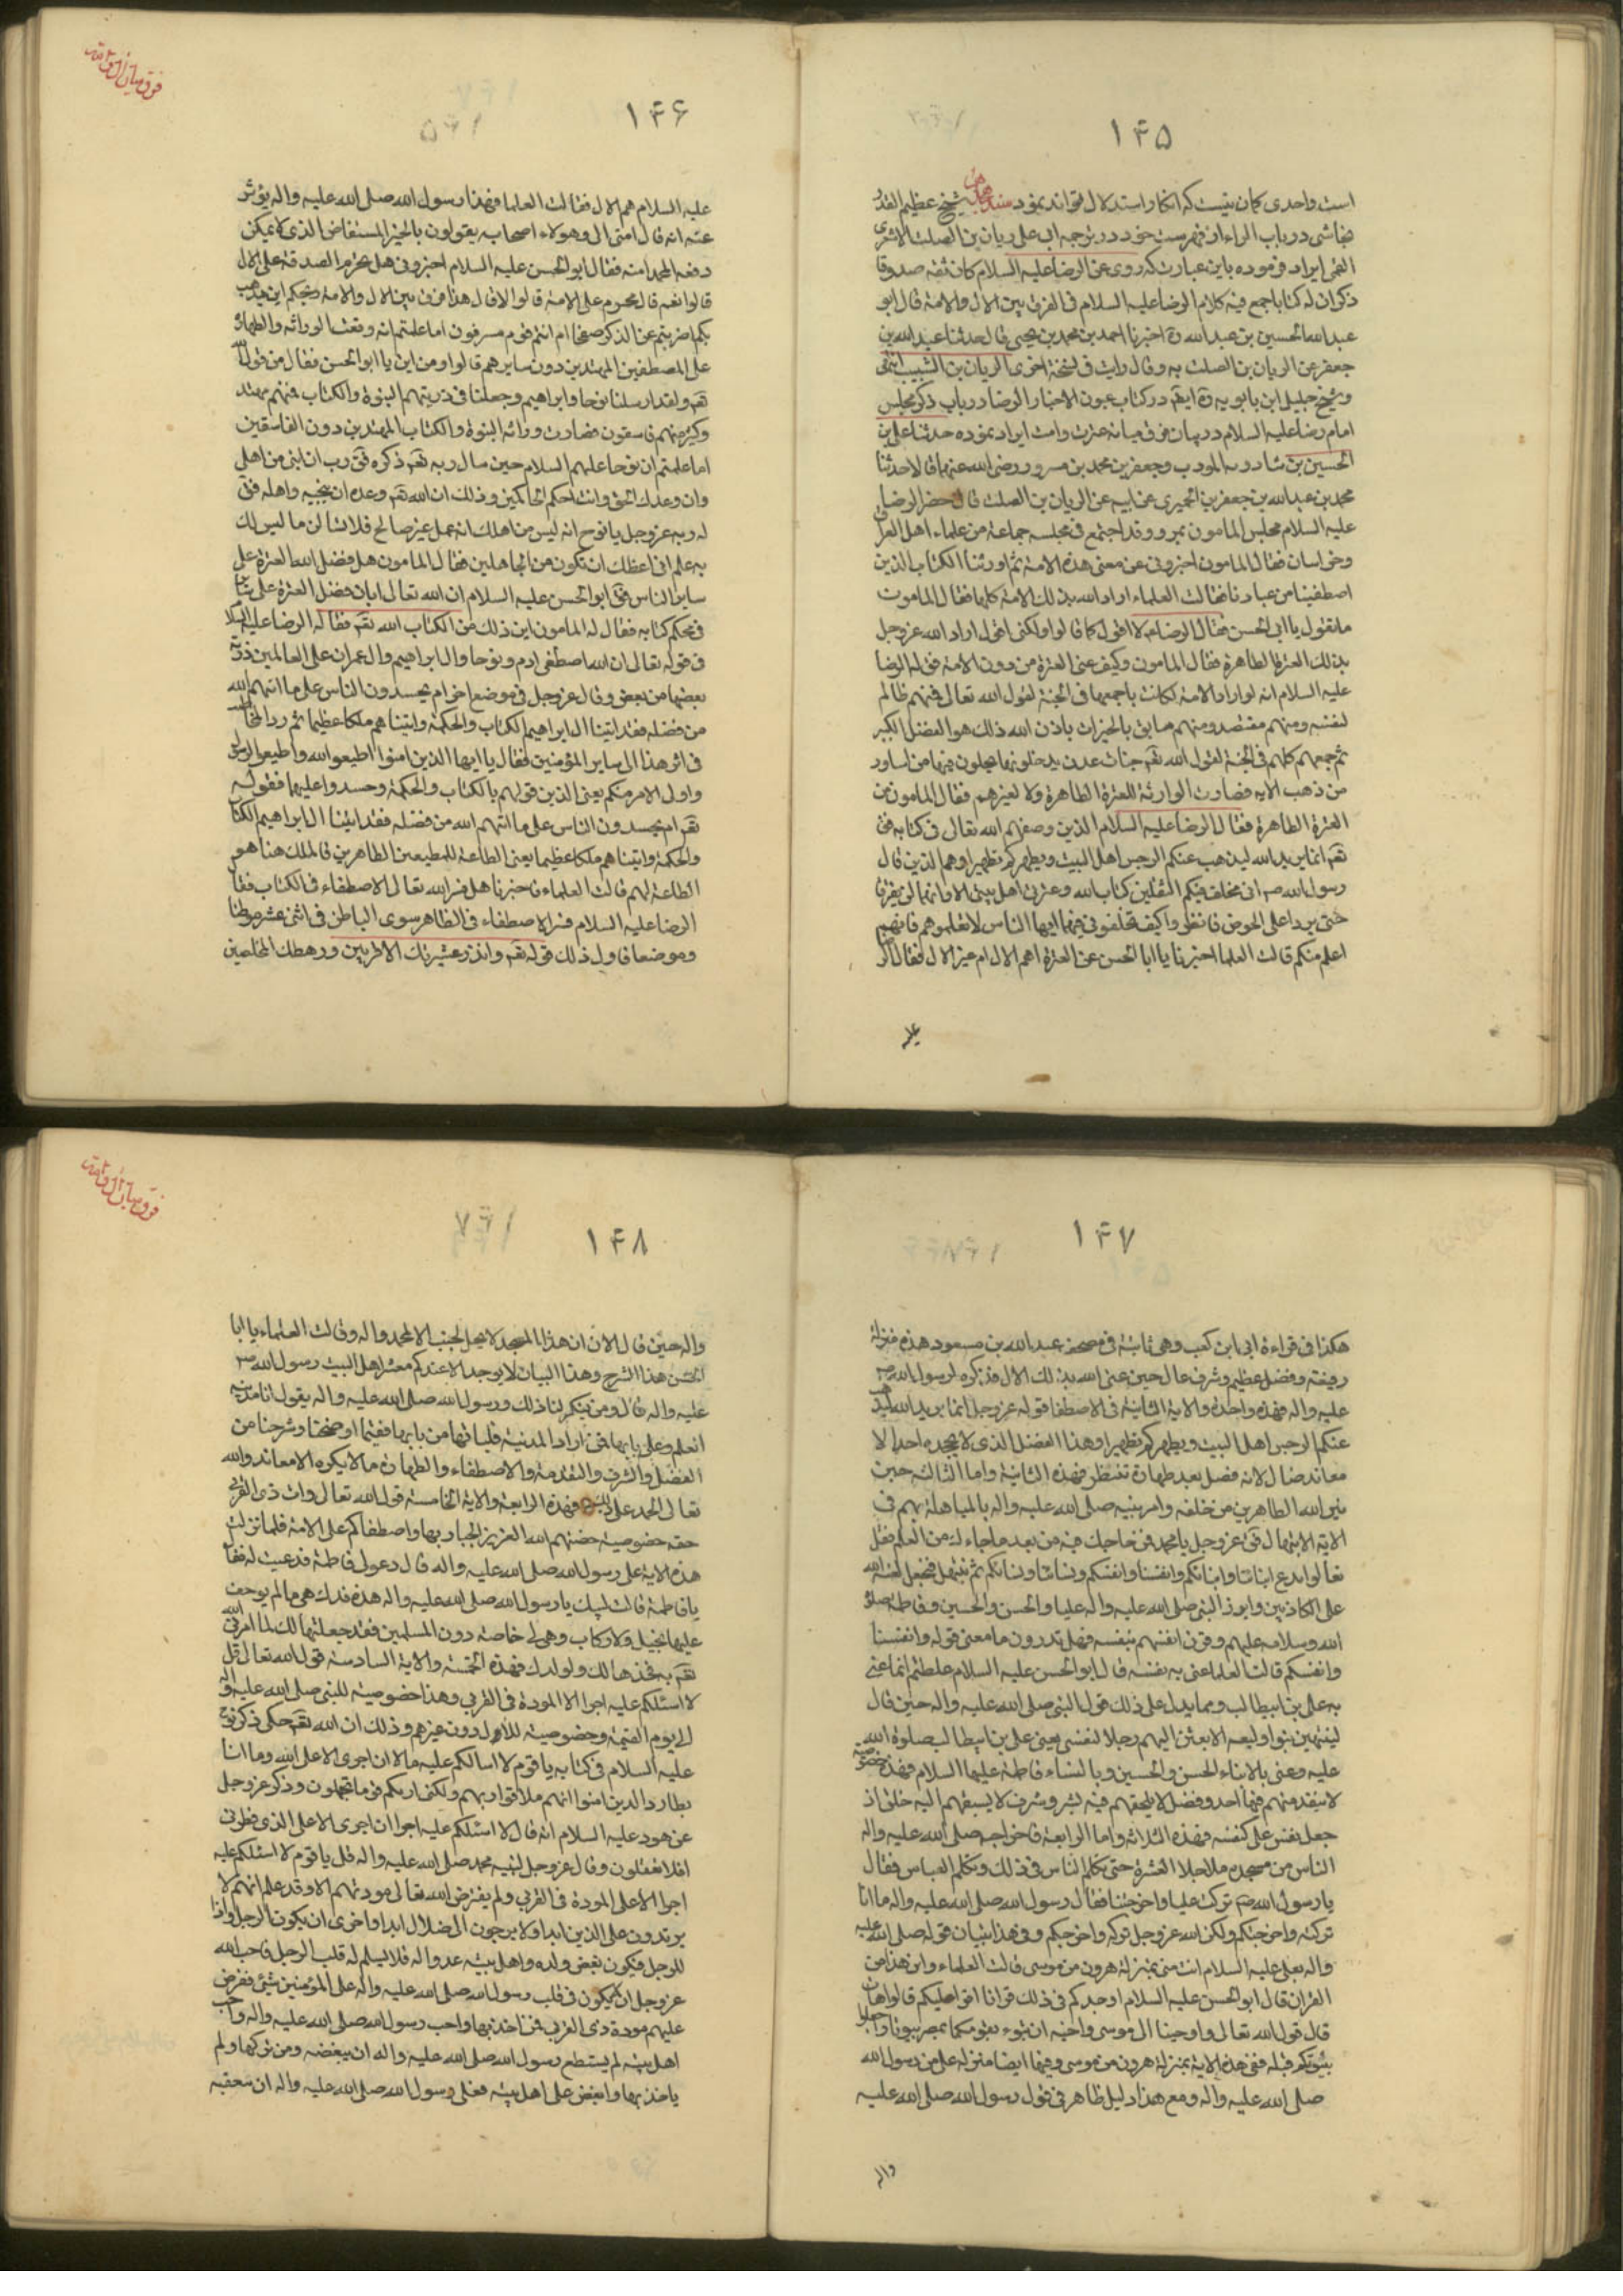 ۱۴۵
است واحدی کمان نیست که انکار استدلال تواند نمود شیخ عظیم القدر
نجاشی در باب الراء از فهرست خود در ترجمه ابی علی ریان بن الصلت الاشعری
القمی ایراد فرموده باین عبارت که روی عن الرضا علیه السلام کان ثقه صدوقا
ذکر ان له کتابا جمع فیه کلام الرضا علیه السلام فی الفرق بین الال والامة قال ابو
عبدالله الحسین بن عبیدالله ره اخبرنا احمد بن محمد بن یحیی قال حدثنا عبدالله بن
جعفر عن الریان بن الصلت به وقال رایت فی نسخة اخری الریان بن الشبیب انتهی
و شیخ جلیل ابن بابویه ره ایضا در کتاب عیون الاخبار الرضا در باب ذکر مجلس
امام رضا علیه السلام در بیان فرق میانه عترت وامت ایراد نموده حدثنا علی بن
الحسین بن شادویه المودب وجعفر بن محمد بن مسرور رضی الله عنهما قالا حدثنا
محمد بن عبدالله بن جعفر بن الحمیری عن ابیه عن الریان بن الصلت قال حضر الرضا
علیه السلام مجلس المامون بمرو وقد اجتمع فی مجلسه جماعة من علماء اهل العراق
وخراسان فقال المامون اخبرونی عن معنی هذه الامة ثم اورثنا الکتاب الذین
اصطفینا من عبادنا فقالت العلماء اراد الله بذلک الامة کلها فقال المامون
ما تقول یا ابی الحسن فقال الرضا لا اقول کما قالوا ولکنی اقول اراد الله عزوجل
بذلک العترة الطاهرة فقال المامون وکیف عنی العترة من دون الامة فق له الرضا
علیه السلام انه لو اراد الامة لکانت باجمعها فی الجنة لقول الله تعالی فمنهم ظالم
لنفسه ومنهم مقتصد ومنهم سابق بالخیرات باذن الله ذلک هو الفضل الکبیر
ثم جمعهم کلهم فی الجنة لقول الله تعم جنات عدن یدخلونها یحلون فیها من اساور
من ذهب الایه فصارت الوارثة للعترة الطاهرة ولا لغیرهم فقال المامون من
العترة الطاهرة فقال الرضا علیه السلام الذین وصفهم الله تعالی فی کتابه فق
تعم انما یرید الله لیذهب عنکم الرجس اهل البیت ویطهرکم تطهیرا وهم الذین قال
رسول الله ص انی مخلف فیکم الثقلین کتاب الله وعترتی اهل بیتی الا وانهما لن یفترقا
حتی یردا علی الحوض فانظروا کیف تخلفونی فیهما ایها الناس لا تعلموهم فانهم
اعلم منکم قالت العلما اخبرنا یا ابا الحسن عن العترة اهم الال ام غیر الال فقال الرضا
علیه
فرق میان ال وامت
۱۴۶
علیه السلام هم الال فقالت العلما فهذا رسول الله صلی الله علیه واله یؤثر
عنه انه قال امتی الی وهولاء اصحابه یقولون بالخبر المستفاض الذی لا یمکن
دفعه ال محمد امته فقال ابو الحسن علیه السلام اخبرونی هل یحرم الصدقة علی الال
قالوا نعم قال محروم علی الامة قالوا لا قال هذا فرق بین الال والامة ویحکم این یذهب
بکم اضربتم عن الذکر صفحا ام انتم قوم مسرفون اما علمتم انه وقعت الوراثه والطهارة
علی المصطفین المهتدین دون سایرهم قالوا ومن این یا ابو الحسن فقال من قول الله
تعم ولقد ارسلنا نوحا وابراهیم وجعلنا فی ذریتهم النبوة والکتاب فمنهم مهتد
وکثیر منهم فاسقون فصارت وراثه النبوة والکتاب المهتدین دون الفاسقین
اما علمتم ان نوحا علیهم السلام حین سال ربه تعم ذکره فق رب ان ابنی من اهلی
وان وعدک الحق وانت احکم الحاکمین وذلک ان الله تعم وعده ان ینجیه واهله فق
له ربه عزوجل یا نوح انه لیس من اهلک انه عمل غیر صالح فلا تسالن ما لیس لک
به علم انی اعظک ان تکون من الجاهلین فقال المامون هل فضل الله العترة علی
سایر الناس فق ابو الحسن علیه السلام ان الله تعالی ابان فضل العترة علی
فی محکم کتابه فقال له المامون این ذلک من الکتاب الله تعم فقال له الرضا علیه السلا
فی قوله تعالی ان الله اصطفی ادم ونوحا وال ابراهیم وال عمران علی العالمین ذریة
بعضها من بعض وقال عزوجل فی موضع اخر ام یحسدون الناس علی ما اتیهم الله
من فضله فقد اتینا ال ابراهیم الکتاب والحکمة واتیناهم ملکا عظیما ثم رد
فی اثر هذا الی سایر المؤمنین فقال یا ایها الذین امنوا اطیعوا الله واطیعوا الرسول
واولی الامر منکم یعنی الذین قولهم بالکتاب والحکمة وحسدوا علیهما فقوله
تعم ام یحسدون الناس علی ما اتیهم الله من فضله فقد اتینا ال ابراهیم الکتا
والحکمة واتیناهم ملکا عظیما یعنی الطاعة للمطیعین الطاهرین فالملک هنا هو
الطاعة لهم قالت العلماء فاخبرنا هل فسر الله تعالی الاصطفاء فی الکتاب فقا
الرضا علیه السلام فسر الاصطفاء فی الظاهر سوی الباطن فی اثنی عشر موطنا
وموضعا فاول ذلک قوله تعم وانذر عشیرتک الاقربین ورهطک المخلصین
۱۴۷
هکذا فی قراءة ابی ابن کعب وهی ثابتة فی مصحف عبدالله بن مسعود هذه منزلة
رفیعة وفضل عظیم وشرف عال حین عنی الله بذلک الال فذکره لرسول الله ص
علیه واله فهذه واحدة والایة الثانیة فی الاصطفا قوله عزوجل انما یرید الله لیذهب
عنکم الرجس اهل البیت ویطهرکم تطهیرا وهذا الفضل الذی لا یجحده احد الا
معاند ضال لانه فضل بعد طهارة تنتظر فهذه الثانیة واما الثالثه حین
میز الله الطاهرین من خلقه وامر نبیه صلی الله علیه واله بالمباهلة بهم فی
الایة الابتهال فق عزوجل یا محمد فمن حاجک فیه من بعد ما جاءک من العلم فقل
تعالوا ندع ابنائنا وابنائکم وانفسنا وانفسکم ونسائنا ونسائکم ثم نبتهل فنجعل لعنة الله
علی الکاذبین وابرز النبی صلی الله علیه واله علیا والحسن والحسین وفاطمة صلوات
الله وسلامه علیهم وقرن انفسهم بنفسه فهل تدرون ما معنی قوله وانفسنا
وانفسکم قالت العلما عنی به نفسه قال ابو الحسن علیه السلام غلطتم انما عنی
به علی بن ابیطالب ومما یدل علی ذلک قول النبی صلی الله علیه واله حین قال
لینتهین بنو اولیعه الا بعثن الیهم رجلا لنفسی یعنی علی بن ابیطالب صلوة الله
علیه وعنی بالابناء الحسن والحسین وبالنساء فاطمة علیها السلام فهذه خصوصیة
لا یتقدمنهم فیها احد وفضل لا یلحقهم فیه بشر وشرف لا یسبقهم الیه خلق اذ
جعل نفس علی کنفسه فهذه الثلاثه واما الرابعة فاخراجه صلی الله علیه واله
الناس من مسجده ما خلا العترة حتی تکلم الناس فی ذلک وتکلم العباس فقال
یا رسول الله ص ترکت علیا واخرجتنا فقال رسول الله صلی الله علیه واله ما انا
ترکته واخرجتکم ولکن الله عزوجل ترکه واخرجکم وفی هذا تبیان قوله صلی الله علیه
واله بعلی علیه السلام انت منی بمنزلة هرون من موسی قالت العلماء واین هذا من
القران قال ابو الحسن علیه السلام اوجدکم فی ذلک قرانا اقراه علیکم قالوا هات
قال قول الله تعالی واوحینا الی موسی واخیه ان تبوء لقومکما بمصر بیوتا واجعلوا
بیوتکم قبلة ففی هذه الایة بمنزلة هرون من موسی وفیها ایضا منزلة علی من رسول الله
صلی الله علیه واله ومع هذا دلیل ظاهر فی قول رسول الله صلی الله علیه
واله
فرق میان ال وامت
۱۴۸
واله حین قال الا ان هذا المسجد لا یحل لجنب الا لمحمد واله وقالت العلماء یا ابا
الحسن هذا الشرح وهذا البیان لا یوجد الا عندکم معشر اهل البیت رسول الله ص
علیه واله قال ومن ینکر لنا ذلک ورسول الله صلی الله علیه واله یقول انا مدینة
العلم وعلی بابها فمن اراد المدینة فلیاتها من بابها ففیما اوضحنا وشرحنا من
الفضل والشرف والتقدمة والاصطفاء والطهارة ما لا ینکره الا معاند والله
تعالی الحمد علی ذلک فهذه الرابعة والایة الخامسة قول الله تعالی وات ذی القربی
حقه خصوصیة خصهم الله العزیز الجبار بها واصطفاکم علی الامة فلما نزلت
هذه الایة علی رسول الله صلی الله علیه واله قال دعوا لی فاطمة فدعیت له فقا
یا فاطمة قالت لبیک یا رسول الله صلی الله علیه واله هذه فدک هی ما لم یوجف
علیها بخیل ولا رکاب وهی لی خاصة دون المسلمین فقد جعلتها لک لما امرنی الله
تعم به فخذها لک ولولدک فهذه الخمسة والایة السادسة قول الله تعالی قل
لا اسئلکم علیه اجرا الا المودة فی القربی وهذا خصوصیة للنبی صلی الله علیه و
الی یوم القیمة وخصوصیة للال دون غیرهم وذلک ان الله تعم حکی ذکر نوح
علیه السلام فی کتابه یا قوم لا اسالکم علیه مالا ان اجری الا علی الله وما انا
بطارد الذین امنوا انهم ملاقوا ربهم ولکنی اریکم قوما تجهلون وذکر عزوجل
عن هود علیه السلام انه قال لا اسئلکم علیه اجرا ان اجری الا علی الذی فطرنی
افلا تعقلون وقال عزوجل لنبیه محمد صلی الله علیه واله قل یا قوم لا اسئلکم علیه
اجرا الا علی المودة فی القربی ولم یفترض الله تعالی مودتهم الا وقد علم انهم لا
یرتدون علی الدین ابدا ولا یرجون الی ضلال ابدا واخری ان یکون الرجل وادا
للرجل فیکون بعض ولده واهل بیته عدوا له فلا یسلم له قلب الرجل فاحب الله
عزوجل ان یکون فی قلب رسول الله صلی الله علیه واله علی المؤمنین شئ ففرض
علیهم مودة ذی القربی فمن اخذ بها واحب رسول الله صلی الله علیه واله واحب
اهل بیته لم یستطع رسول الله صلی الله علیه واله ان یبغضه ومن ترکها ولم
یاخذ بها وابغض علی اهل بیته فعلی رسول الله صلی الله علیه واله ان